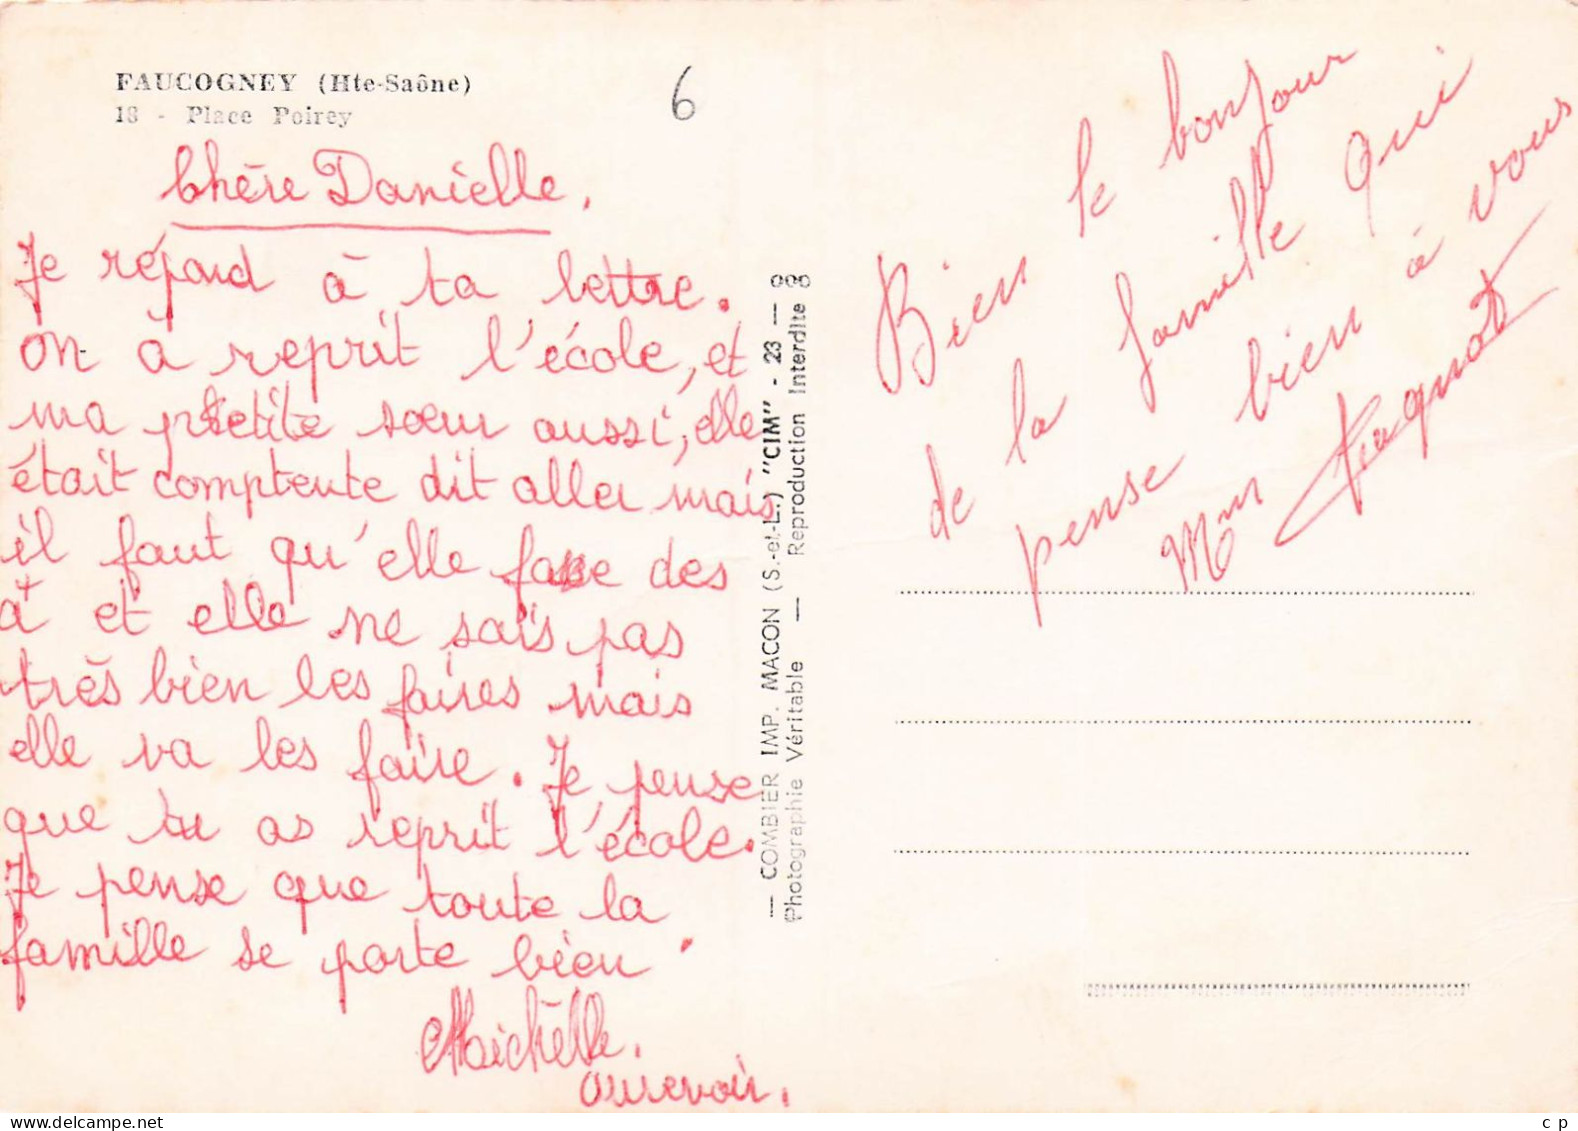 FAUCOGNEY (Hte-Saône)
18 - Place Poirey
6
Chère Danielle,
Je répond à ta lettre.
on a reprit l'école, et
ma petite sœur aussi, elle
était comptente dit aller mais
il faut qu'elle fasse des
a et elle ne sais pas
très bien les faires mais
elle va les faire. Je pense
que tu as reprit l'école.
Je pense que toute la
famille se porte bien.
Maichèlle,
aurevoir.
— COMBIER IMP. MACON (S.-et-L.) "CIM" - 23 —
Photographie Véritable — Reproduction Interdite
Bien le bonjour
de la famille qui
pense bien à vous
Mme
c p